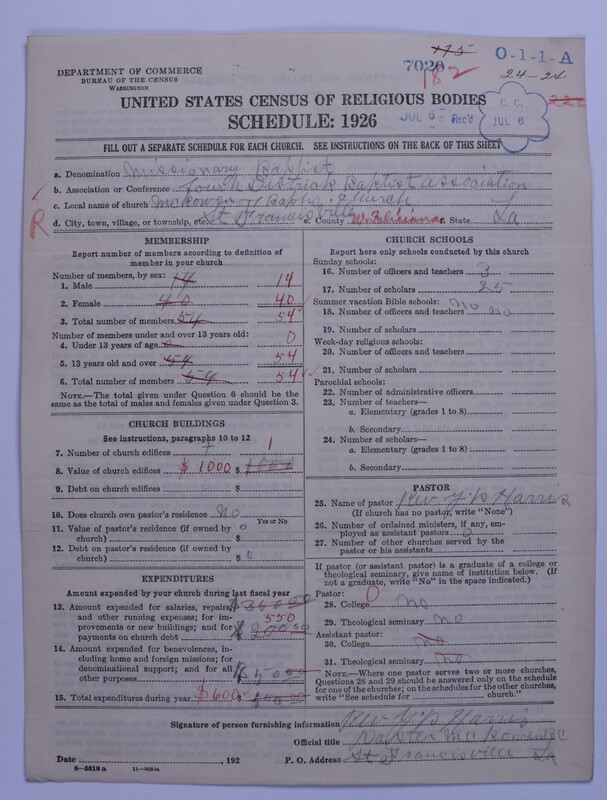 175
7020
182
O-1-1-A
24-24
DEPARTMENT OF COMMERCE
BUREAU OF THE CENSUS
WASHINGTON
UNITED STATES CENSUS OF RELIGIOUS BODIES
SCHEDULE: 1926
JUL 6 Rec'd
C. C.
JUL 6
FILL OUT A SEPARATE SCHEDULE FOR EACH CHURCH. SEE INSTRUCTIONS ON THE BACK OF THIS SHEET
a. Denomination Missionary Baptist
b. Association or Conference fourth District Baptist association
c. Local name of church McKowen Baptis Church
d. City, town, village, or township, etc. St Francisville e. County W. Feliciana f. State La
R
MEMBERSHIP
Report number of members according to definition of
member in your church
Number of members, by sex:
1. Male 14 14
2. Female 40 40
3. Total number of members 54 54
Number of members under and over 13 years old:
4. Under 13 years of age 0 0
5. 13 years old and over 54 54
6. Total number of members 54 54
NOTE.—The total given under Question 6 should be the
same as the total of males and females given under Question 3.
CHURCH BUILDINGS
See instructions, paragraphs 10 to 12
7. Number of church edifices 1 1
8. Value of church edifices $ 1000 $ 1000
9. Debt on church edifices $
10. Does church own pastor's residence No
Yes or No
11. Value of pastor's residence (if owned by
church) 0 $
12. Debt on pastor's residence (if owned by
church) $ 0
EXPENDITURES
Amount expended by your church during last fiscal year
13. Amount expended for salaries, repairs, $
and other running expenses; for im- 550
provements or new buildings; and for
payments on church debt $ 200 00
14. Amount expended for benevolences,
including home and foreign missions; for
denominational support; and for all
other purposes $ 50 00
15. Total expenditures during year $ 600 $
CHURCH SCHOOLS
Report here only schools conducted by this church
Sunday schools:
16. Number of officers and teachers 3
17. Number of scholars 25
Summer vacation Bible schools: No
18. Number of officers and teachers no
19. Number of scholars
Week-day religious schools:
20. Number of officers and teachers
21. Number of scholars
Parochial schools:
22. Number of administrative officers
23. Number of teachers—
a. Elementary (grades 1 to 8)
b. Secondary
24. Number of scholars—
a. Elementary (grades 1 to 8)
b. Secondary
PASTOR
25. Name of pastor Rev Harris
(If church has no pastor, write "None")
26. Number of ordained ministers, if any, em-
ployed as assistant pastors 0
27. Number of other churches served by the
pastor or his assistants
If pastor (or assistant pastor) is a graduate of a college or
theological seminary, give name of institution below. (If
not a graduate, write "No" in the space indicated.)
Pastor: 0
28. College no
29. Theological seminary no
Assistant pastor:
30. College no
31. Theological seminary no
NOTE.—Where one pastor serves two or more churches,
Questions 28 and 29 should be answered only on the schedule
for one of the churches; on the schedules for the other churches,
write "See schedule for church."
Signature of person furnishing information Rev Harris
Official title Paster McKowen B C
Date , 192 P. O. Address St Francisville La
8—5518a 11—9054a